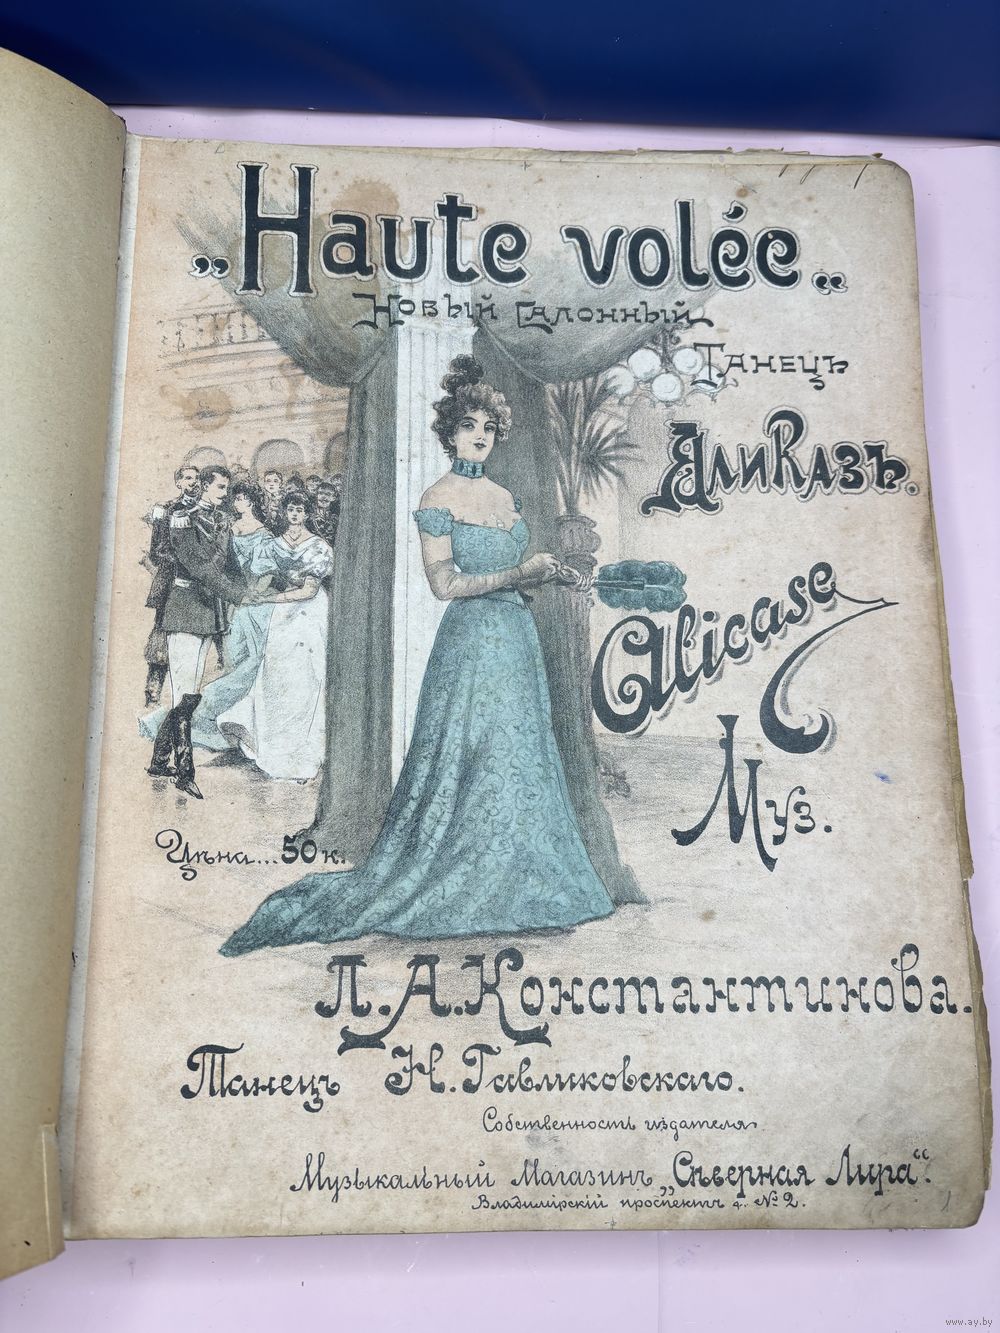 „Haute volée„
Новый Салонный
Танецъ
Аликазъ.
Alicase
Муз.
Цѣна... 50 к.
Л. А. Константинова.
Танецъ Н. Гавликовскаго.
Собственность издателя.
Музыкальный Магазинъ „Сѣверная Лира“.
Владимірскій проспектъ д. № 2.
www.ay.by